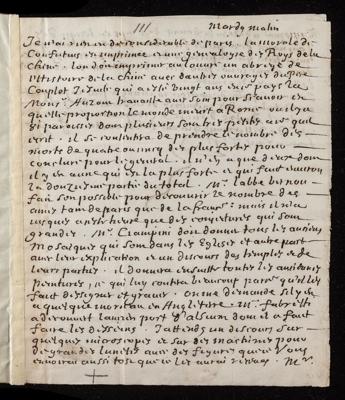 111
mardy matin
Je n'ai rien eu de considerable de paris. La morale de
Confutius est imprimée et une genealogie des Roys de la
Chine. l'on doit imprimer au Louure un abregé de
l'histoire de la chine auec d'autres ouurages du Pere
Couplet Jesuite qui a esté vingt ans en ce pays la
Mons.r Auzout trauaille a Rome pour sçauoir en
quelle proportion le monde meurt a Rome
paroisses dont plusieurs sont tres petites a ce qu'il
ecrit. il se contentera de prendre le nombre des
morts de quatre ou cinq des plus fortes pour
conclure pour le general. il n'y a que deux dont
il y en a une qui est la plus forte et qui fait enuiron
la douzieme partie du total. Mr. l'abbé
fait son possible pour decouurir le nombre des
ames tant de paris que de la france mais il n'a
iusques a cette heure que des coniectures qui sont
grandes. Mr. Ciampini doit donner tous les anciens
Mosaiques qui sont dans les Eglises et autre part
auec leur explication et un discours des temples et de
leurs parties. il donnera ensuitte toutes les anciennes
peintures, ce qui luy coutera beaucoup parce qu'il les
faut dessigner et grauer. on me demande s'il y en
a quelque montre en Angleterre. Mr. fabretti
a decouuert l'ancien port d'Actium dont il a fait
faire les desseins. J'attends un discours sur
quelques microscopes et sur des machines pour
de grandes lunettes auec des figures que ie vous
enuoieray aussi tost que ie les auray receues. Mr.